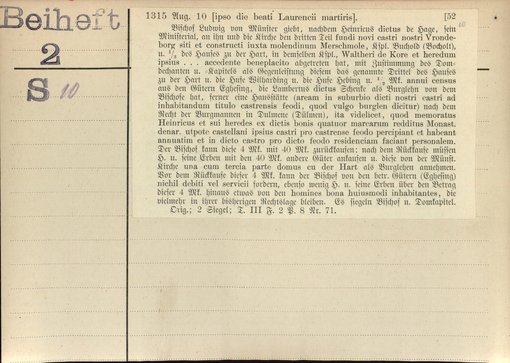 Beiheft
2
S 10
1315 Aug. 10 [ipso die beati Laurencii martiris]. [52
10
Bischof Ludwig von Münster giebt, nachdem Heinricus dictus de Hage, sein
Ministerial, an ihn und die Kirche den dritten Teil fundi novi castri nostri Vronde-
borg siti et constructi iuxta molendinum Merschmole, Kspl. Buchold (Bocholt),
u. 1/3 des Hauses zu der Hart, in demselben Kspl., Waltheri de Kore et heredum
ipsius . . . accedente beneplacito abgetreten hat, mit Zustimmung des Dom-
dechanten u. -Kapitels als Gegenleistung diesem das genannte Drittel des Hauses
zu der Hart u. die Hufe Bilharding u. die Hufe Hebing u. 1/2 Mk. annui census
aus den Gütern Eghesing, die Lambertus dictus Schenke als Burglehn von dem
Bischofe hat, ferner eine Hausstätte (aream in suburbio dicti nostri castri ad
inhabitandum titulo castrensis feodi, quod vulgo burglen dicitur) nach dem
Recht der Burgmannen in Dulmene (Dülmen), ita videlicet, quod memoratus
Heinricus et sui heredes ex dictis bonis quatuor marcarum redditus Monast.
denar. utpote castellani ipsius castri pro castrense feodo percipiant et habeant
annuatim et in dicto castro pro dicto feodo residenciam faciant personalem.
Der Bischof kann diese 4 Mk. mit 40 Mk. zurückkaufen: nach dem Rückkaufe müssen
H. u. seine Erben mit den 40 Mk. andere Güter ankaufen u. diese von der Münst.
Kirche una cum tercia parte domus eu der Hart als Burglehen annehmen.
Vor dem Rückkaufe dieser 4 Mk. kann der Bischof von den betr. Gütern (Eghesing)
nichil debiti vel servicii fordern, ebenso wenig H. u. seine Erben über den Betrag
dieser 4 Mk. hinaus etwas von den homines bona huiusmodi inhabitantes, die
vielmehr in ihrer bisherigen Rechtslage bleiben. Es siegeln Bischof u. Domkapitel.
Orig.; 2 Siegel; T. III F. 2 P. 8 Nr. 71.